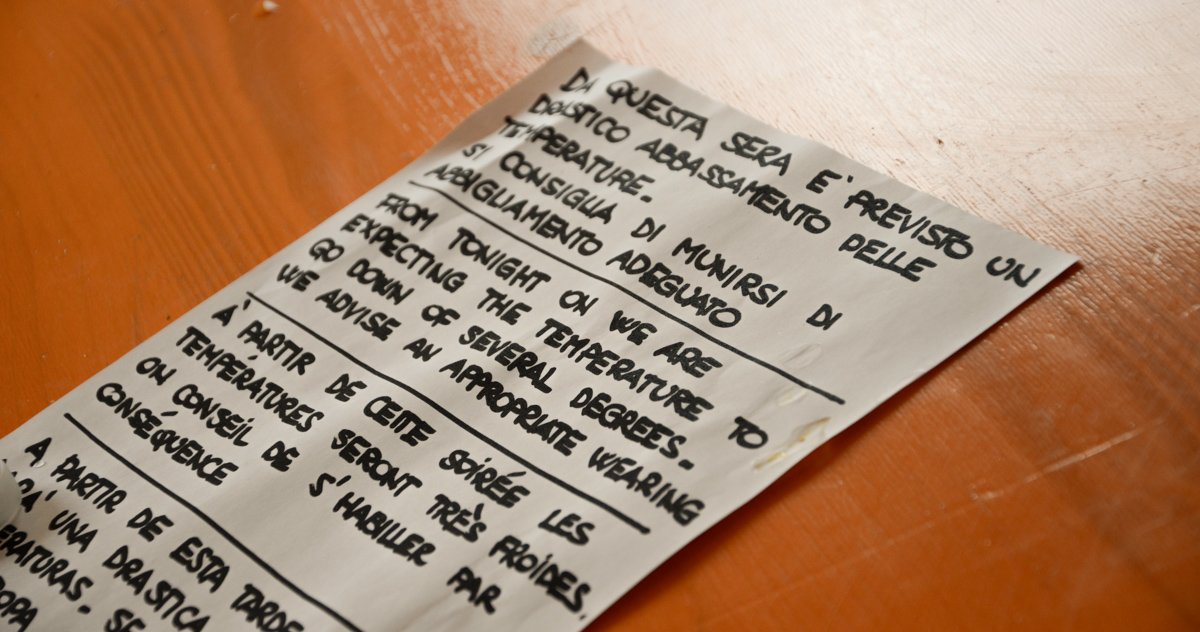 DA QUESTA SERA E' PREVISTO UN
DRASTICO ABBASSAMENTO DELLE
TEMPERATURE.
SI CONSIGLIA DI MUNIRSI DI
ABBIGLIAMENTO ADEGUATO
FROM TONIGHT ON WE ARE
EXPECTING THE TEMPERATURE TO
GO DOWN OF SEVERAL DEGREES.
WE ADVISE AN APPROPRIATE WEARING
A' PARTIR DE CETTE SOIRÉE LES
TEMPÉRATURES SERONT TRÈS FROIDES.
ON CONSEIL DE S'HABILLER PAR
CONSÉQUENCE
A PARTIR DE ESTA TARDE
UNA DRASTICA
SE